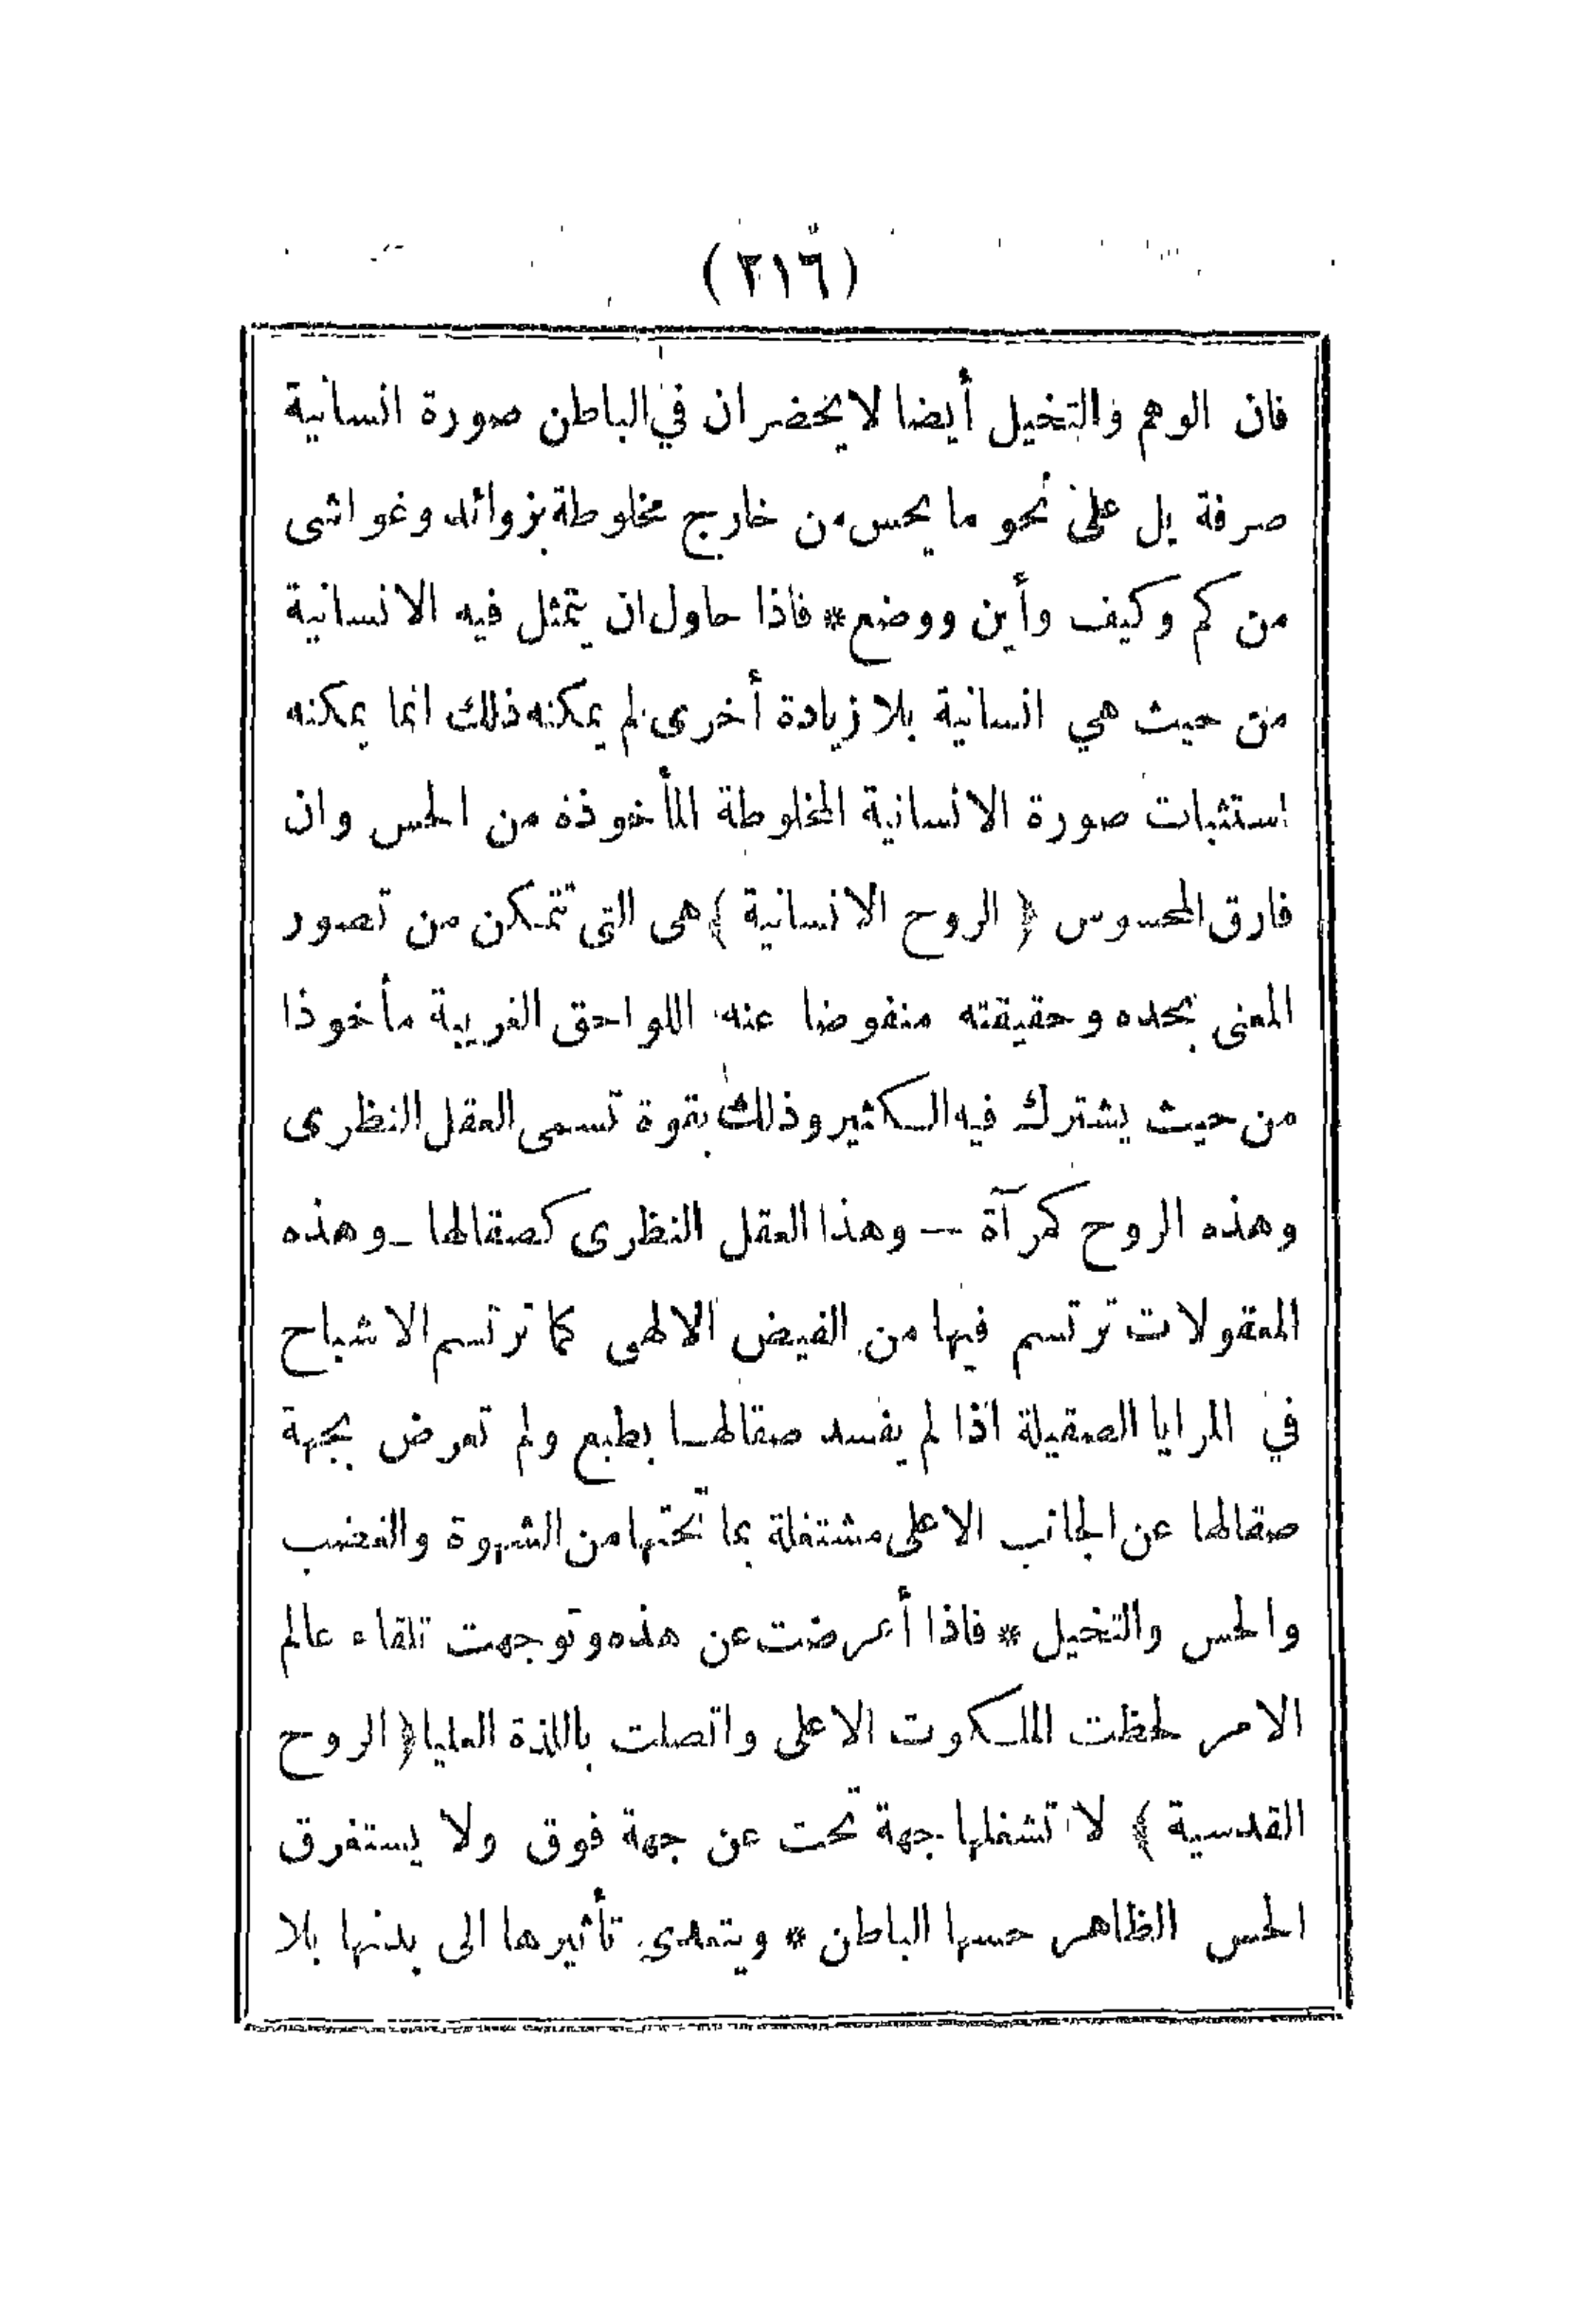 (٢١٦)
فان الوهم والتخيل أيضا لا يحضران في الباطن صورة انسانية
صرفة بل على نحو ما يحس من خارج مخلوطة بزوائد وغواشى
من كم وكيف وأين ووضع * فاذا حاول ان يتمثل فيه الانسانية
من حيث هي انسانية بلا زيادة أخرى لم يمكنه ذلك انما يمكنه
استثبات صورة الانسانية المخلوطة المأخوذة من الحس وان
فارق المحسوس ﴿ الروح الانسانية ﴾ هى التى تتمكن من تصور
المعنى بحده وحقيقته منفوضا عنه اللواحق الغريبة مأخوذا
من حيث يشترك فيه الكثير وذلك بقوة تسمى العقل النظرى
وهذه الروح كمرآة — وهذا العقل النظرى كصقالها ـ وهذه
المعقولات ترتسم فيها من الفيض الالهى كما ترتسم الاشباح
في المرايا الصقيلة اذا لم يفسد صقالها بطبع ولم تعرض بجهة
صقالها عن الجانب الاعلى مشتغلة بما تحتها من الشهوة والغضب
والحس والتخيل * فاذا أعرضت عن هذه وتوجهت تلقاء عالم
الامر لحظت الملكوت الاعلى واتصلت باللذة العليا ﴿ الروح
القدسية ﴾ لا تشغلها جهة تحت عن جهة فوق ولا يستغرق
الحس الظاهر حسها الباطن * ويتعدى تأثيرها الى بدنها بلا